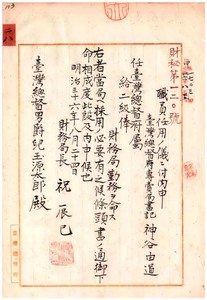 財秘第一二〇號
職員任用ノ儀ニ付内申
臺灣總督府專賣局書記
神谷由道
任臺灣總督府属
給二級俸
財務局勤務ヲ命ス
右者當局ヘ採用必要有之候條頭書ノ通御下
命相成度此段及内申候也
明治三十六年八月二十四日
財務局長 祝 辰巳
臺灣總督男爵兒玉源太郎殿